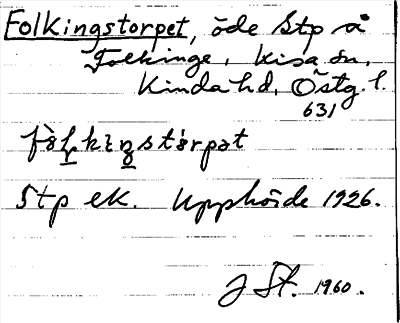 Folkingstorpet, öde Stp å
Folkinge, Kisa sn,
Kinda hd, Östg. l.
631
fòl̥kiŋstòrpət
Stp ek. Upphörde 1926.
J St. 1960.